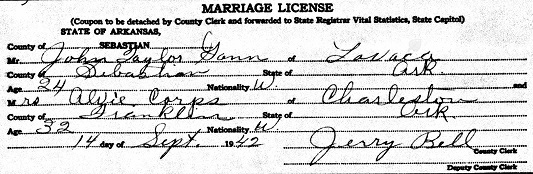 MARRIAGE LICENSE
(Coupon to be detached by County Clerk and forwarded to State Registrar Vital Statistics, State Capitol)
STATE OF ARKANSAS,
County of SEBASTIAN
Mr. John Taylor Gann of Lavaca
County of Sebastian State of Ark.
Age 24 Nationality W. and
Mrs Algie Corps of Charleston
County of Franklin State of Ark
Age 32 Nationality W
14 day of Sept. 1942
Jerry Bell County Clerk
Deputy County Clerk